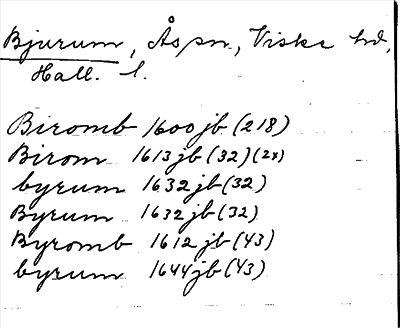 Bjurum, Ås sn, Viske hd,
Hall. l.
Biromb 1600 jb (218)
Birom 1613 jb (32) (2x)
byrum 1632 jb (32)
Byrum 1632 jb (32)
Byromb 1612 jb (43)
byrum 1644 jb (43)